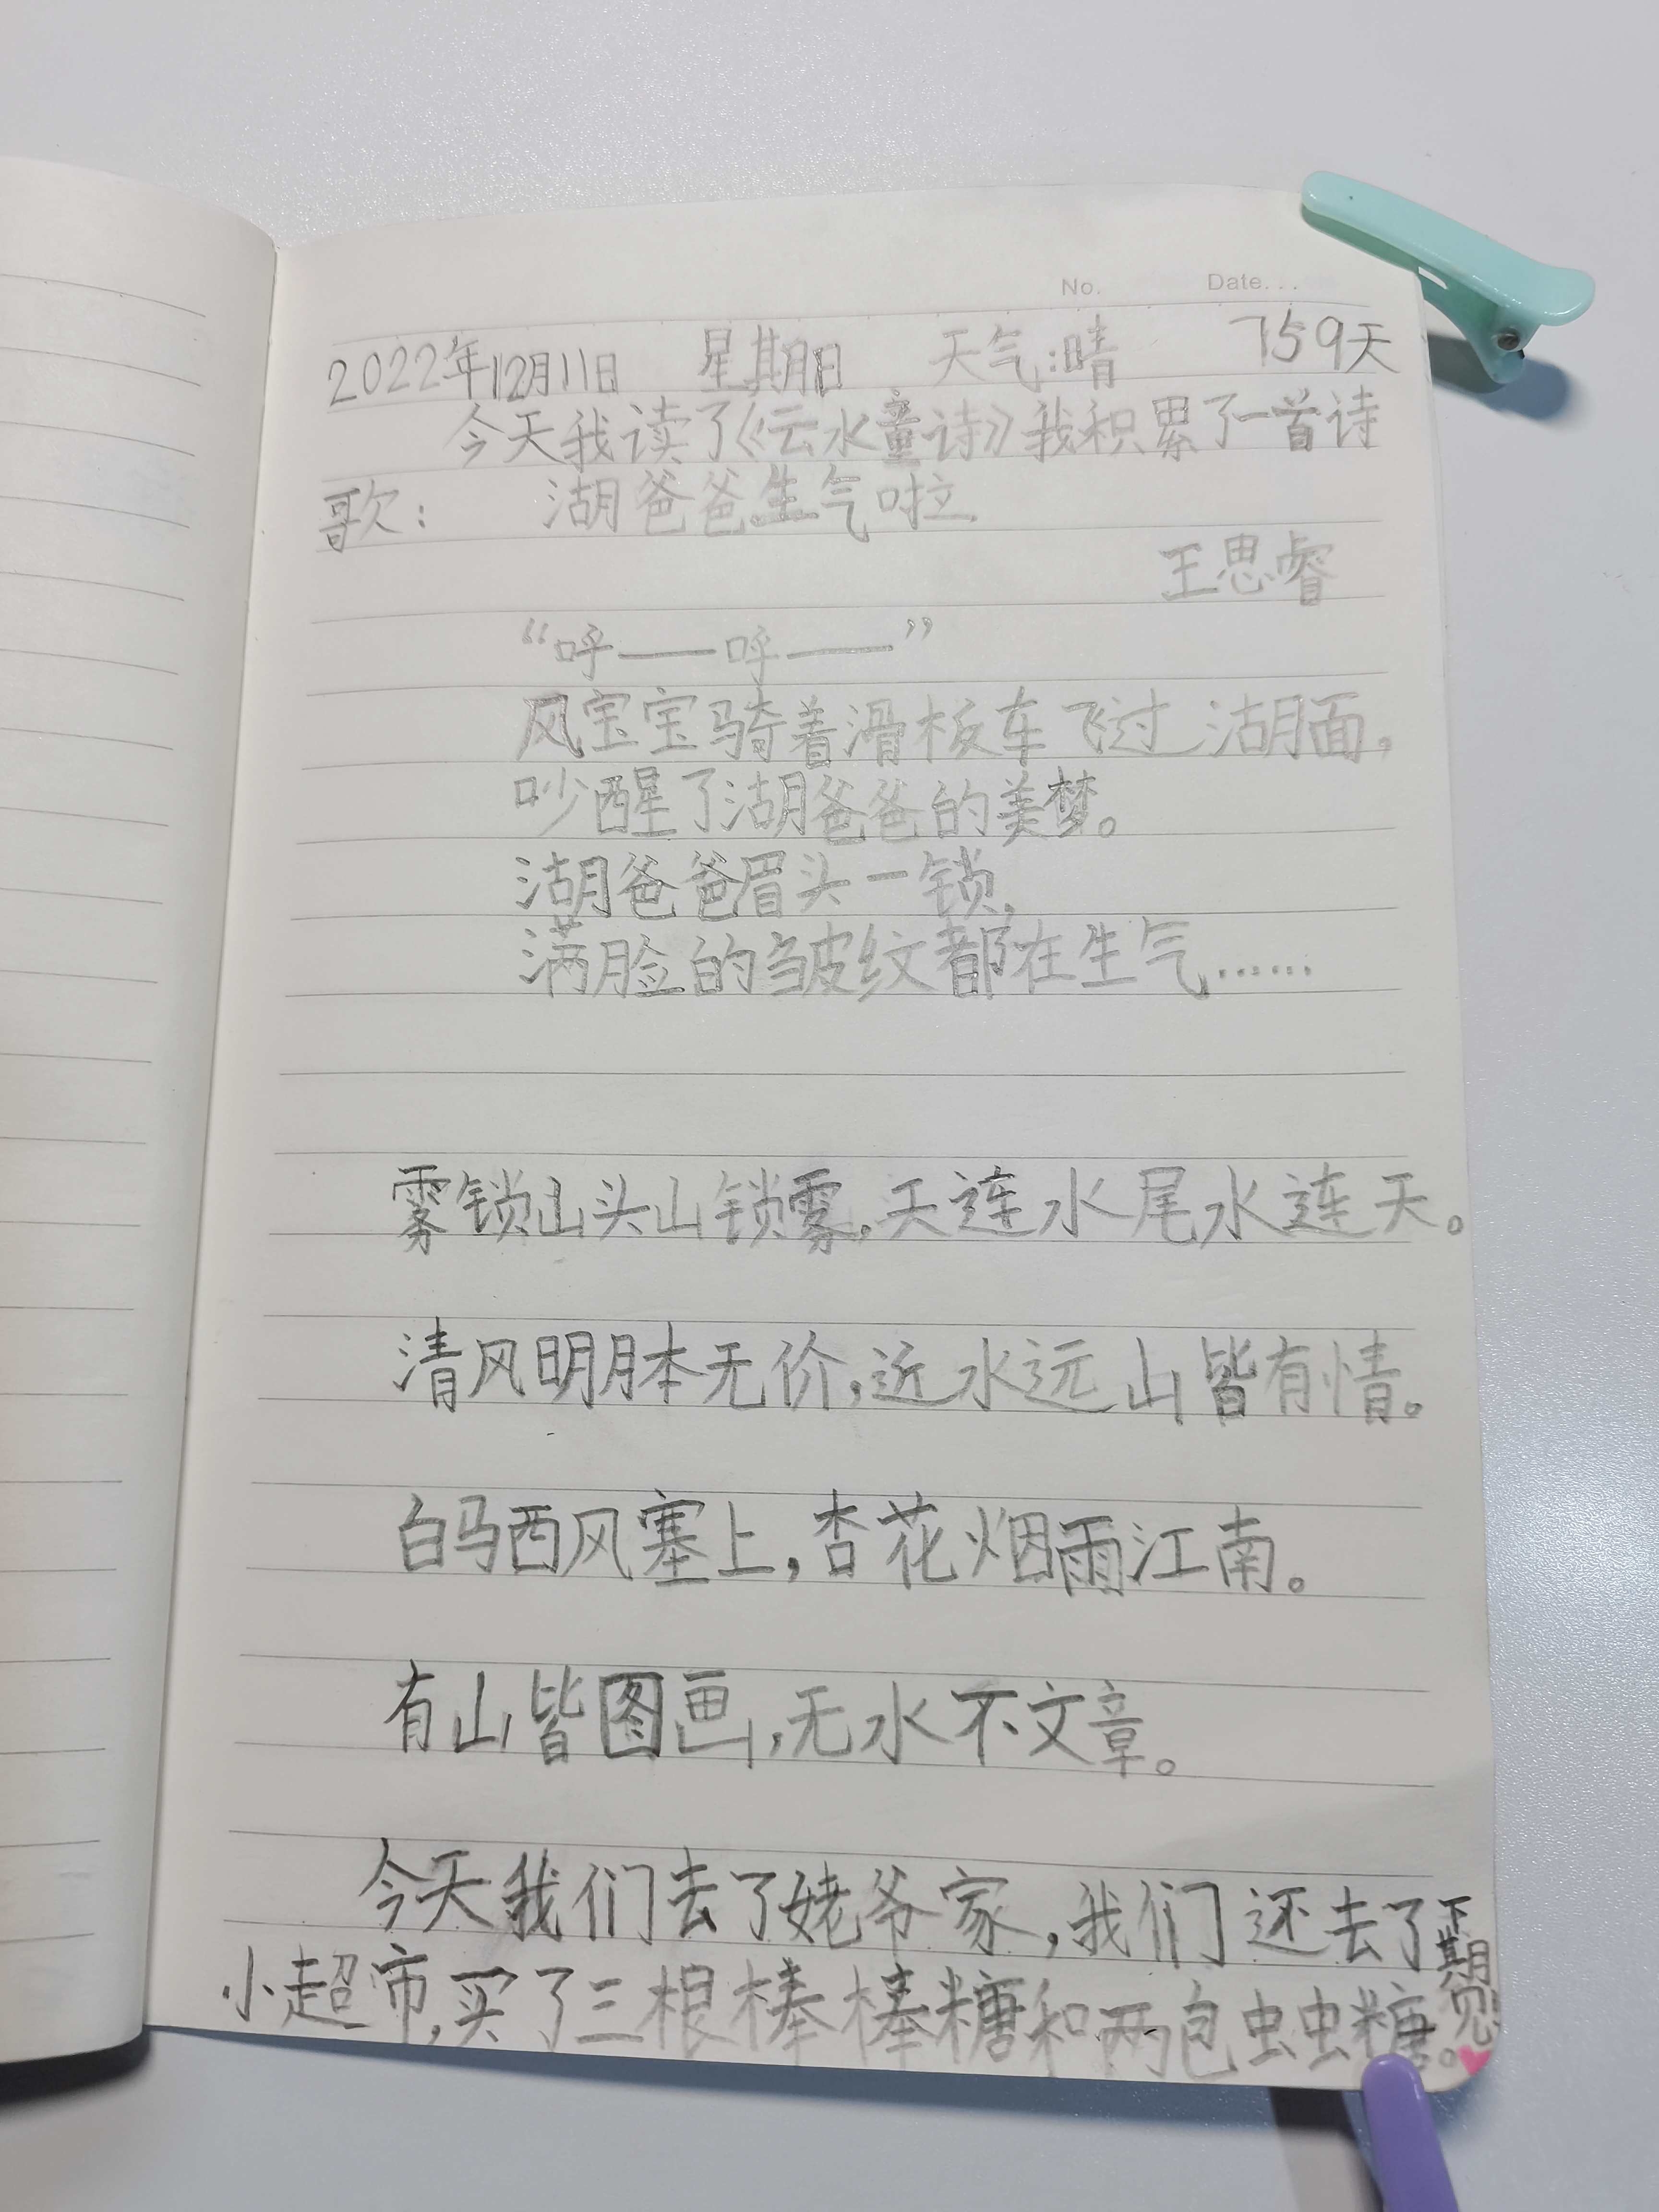 No. Date...
2022年12月11日 星期日 天气:晴 759天
今天我读了《云水童诗》我积累了一首诗
歌: 湖爸爸生气啦
王思睿
“呼——呼——”
风宝宝骑着滑板车飞过湖面,
吵醒了湖爸爸的美梦。
湖爸爸眉头一锁,
满脸的皱纹都在生气……
雾锁山头山锁雾,天连水尾水连天。
清风明月本无价,近水远山皆有情。
白马西风塞上,杏花烟雨江南。
有山皆图画,无水不文章。
今天我们去了姥爷家,我们还去了
小超市,买了三根棒棒糖和两包虫虫糖。
下期见